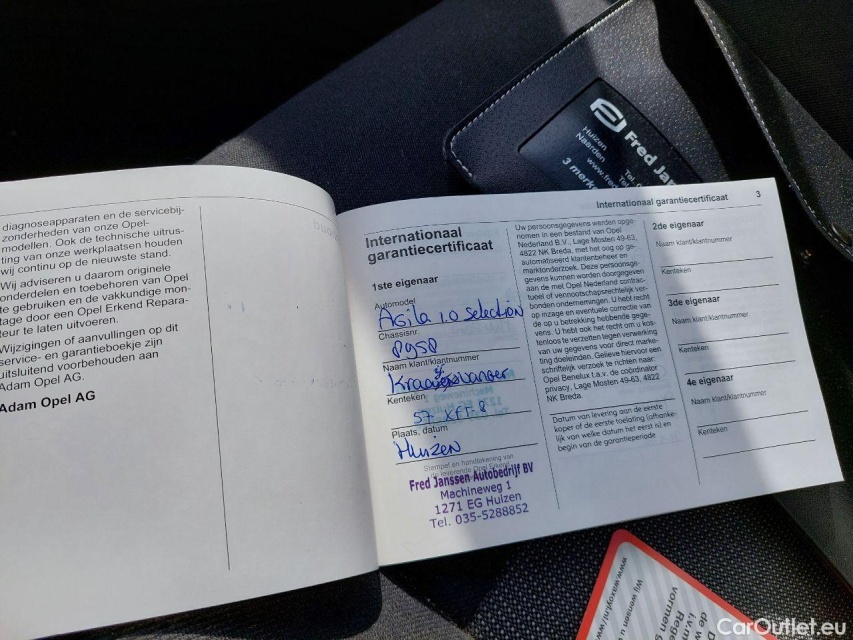 diagnoseapparaten en de servicebij-
zonderheden van onze Opel-
modellen. Ook de technische uitrus-
ting van onze werkplaatsen houden
wij continu op de nieuwste stand.
Wij adviseren u daarom originele
onderdelen en toebehoren van Opel
te gebruiken en de vakkundige mon-
tage door een Opel Erkend Repara-
teur te laten uitvoeren.
Wijzigingen of aanvullingen op dit
service- en garantieboekje zijn
uitsluitend voorbehouden aan
Adam Opel AG.
Adam Opel AG
Internationaal garantiecertificaat
3
Internationaal
garantiecertificaat
1ste eigenaar
Automodel
Agila 1.0 selection
Chassisnr.
8958
Naam klant/klantnummer
Kenteken
57-XFT-8
Plaats, datum
Huizen
Stempel en handtekening van
Fred Janssen Autobedrijf BV
Machineweg 1
1271 EG Huizen
Tel. 035-5288852
Uw persoonsgegevens werden opge-
nomen in een bestand van Opel
Nederland B.V., Lage Mosten 49-63,
4822 NK Breda, met het oog op ge-
automatiseerd klantenbeheer en
marktonderzoek. Deze persoonsge-
gevens kunnen worden doorgegeven
aan de met Opel Nederland contrac-
tueel of vennootschapsrechtelijk ver-
bonden ondernemingen. U hebt recht
op inzage en eventuele correctie van
de op u betrekking hebbende gege-
vens. U hebt ook het recht om u kos-
teloos te verzetten tegen verwerking
van uw gegevens voor direct marke-
ting doeleinden. Gelieve hiervoor een
schriftelijk verzoek te richten naar:
Opel Benelux t.a.v. de coördinator
privacy, Lage Mosten 49-63, 4822
NK Breda.
Datum van levering aan de eerste
koper of de eerste toelating (afhanke-
lijk van welke datum het eerst is) en
begin van de garantieperiode
2de eigenaar
Naam klant/klantnummer
Kenteken
3de eigenaar
Naam klant/klantnummer
Kenteken
4e eigenaar
Naam klant/klantnummer
Kenteken
Fred Jan
Huizen
Naarden
3 merk
CarOutlet.eu